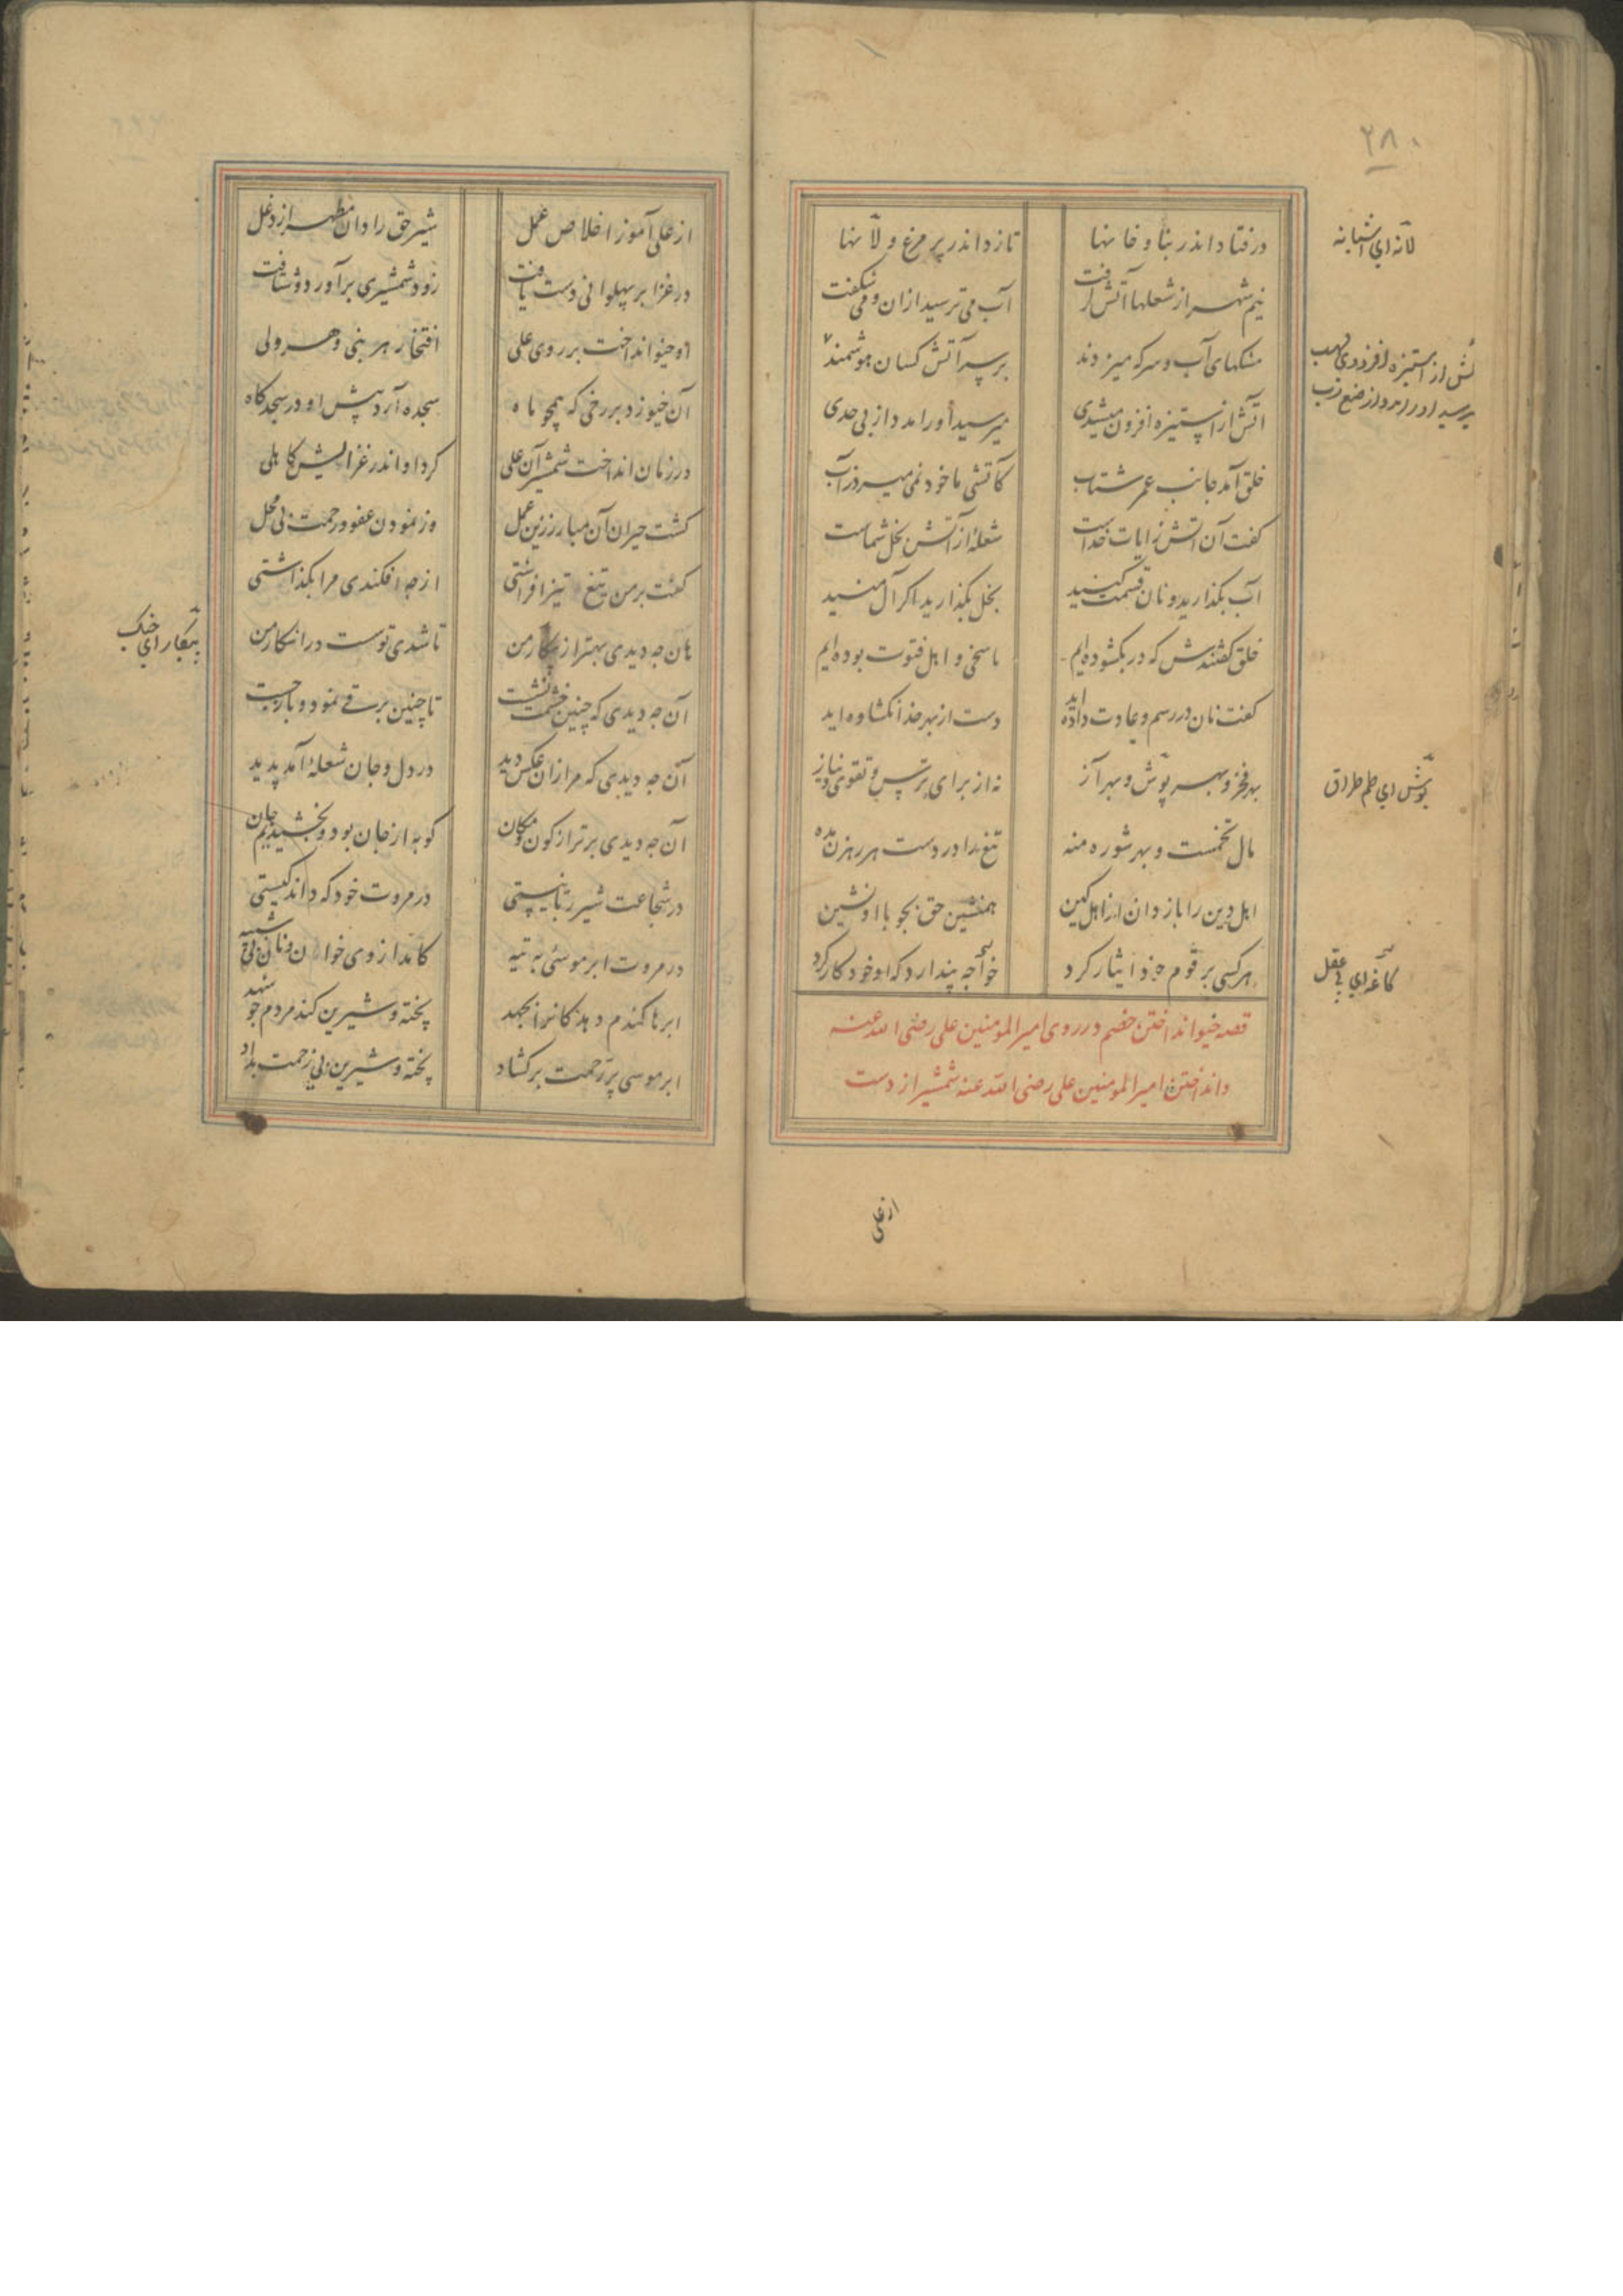 ۲۸۰
درفتاد اندر بنا و خانها تا زد اندر پر مرغ و لانها
نیم شهر از شعلها آتش گرفت آب می ترسید ازان و می شکفت
مشکهای آب و سرکه میزدند بر سر آتش کسان هوشمند
آتش از استیزه افزون میشدی میرسید او را مدد از بی حدی
خلق آمد جانب عمر شتاب کاتشی ما خود نمی میرد ز آب
کفت آن آتش ز ایات خداست شعلهٔ از آتش بخل شماست
آب بکذارید و نان قسمت کنید بخل بکذارید اکر آل منید
خلق کفتندش که در بکشوده ایم ما سخی و اهل فتوت بوده ایم
کفت نان در رسم و عادت داده اید دست از بهر خدا نکشاده اید
بهر فخر و بهر بوش و بهر آز نه از برای ترس و تقوی و نیاز
مال تخمست و بهر شوره منه تیغ را در دست هر رهزن مده
اهل دین را باز دان از اهل کین همنشین حق بجو با او نشین
هر کسی بر قوم خود ایثار کرد خواجه پندارد که او خود کار کرد
قصه خیو انداختن خصم در روی امیر المومنین علی رضی الله عنه
و انداختن امیر المومنین علی رضی الله عنه شمشیر از دست
از علی
لانه ای آشیانه
بوش ای طمطراق
کاغه ای بی عقل
از علی آموز اخلاص عمل شیر حق را دان مطهر از دغل
در غزا بر پهلوانی دست یافت زود شمشیری برآورد و شتافت
او خیو انداخت بر روی علی افتخار هر نبی و هر ولی
آن خیو زد بر رخی که همچو ماه سجده آرد پیش او در سجدکاه
در زمان انداخت شمشیر آن علی کرد او اندر غزایش کاهلی
کشت حیران آن مبارز زین عمل وز نمودن عفو و رحمت بی محل
کفت بر من تیغ تیز افراشتی از چه افکندی مرا بکذاشتی
هان چه دیدی بهتر از پیکار من تا شدی تو سست در اشکار من
آن چه دیدی که چنین خشمت نشست تا چنین برقی نمود و باز جست
آن چه دیدی که مرا زان عکس دید در دل و جان شعلهٔ آمد پدید
آن چه دیدی برتر از کون و مکان کو به از جان بود و بخشیدیم جان
در شجاعت شیر ربانیستی در مروت خود که داند کیستی
در مروت ابر موسئی به تیه کامد از وی خوان و نان بی شبیه
ابرها کندم دهد کانرا بجهد پخته و شیرین کند مردم چو شهد
ابر موسی پر رحمت برکشاد پخته و شیرین بی زحمت بداد
پیکار ای جنک